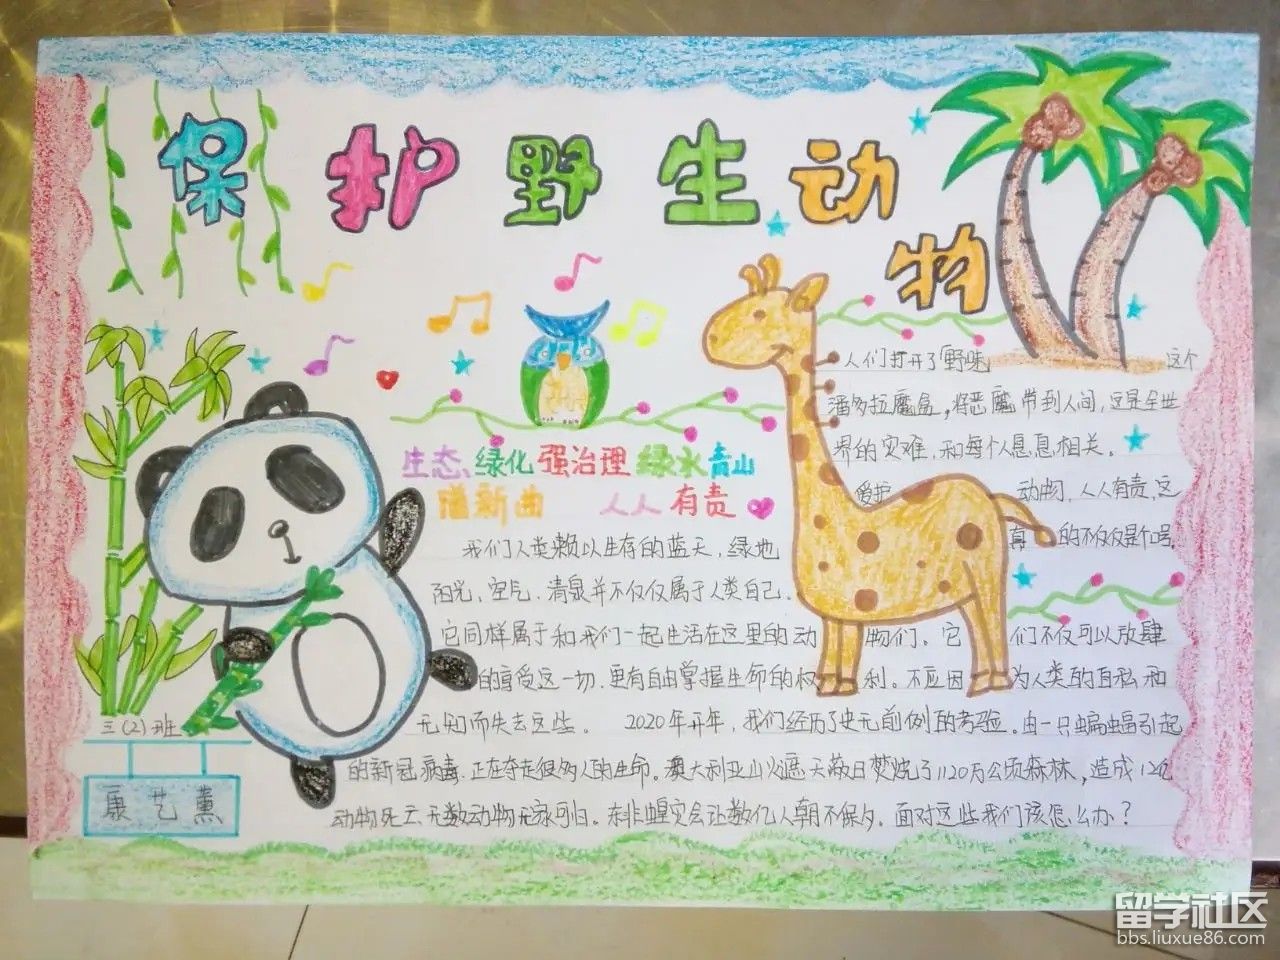 保护野生动
物
人们打开了"野味 这个
潘多拉魔盒，将恶魔带到人间，这是全世
界的灾难，和每个人息息相关。
爱护 动物，人人有责，这
真 的不仅仅是口号。
生态、绿化 强治理 绿水青山
谱新曲 人人有责
我们人类赖以生存的蓝天，绿地
阳光，空气，清泉并不仅仅属于人类自己，
它同样属于和我们一起生活在这里的动物们。它们不仅可以放肆
的享受这一切，更有自由掌握生命的权利。不应因为人类的自私和
无知而失去这些。 2020年开年，我们经历了史无前例的考验。由一只蝙蝠引起
的新冠病毒，正在夺走很多人的生命。澳大利亚山火遮天蔽日焚烧了1120万公顷森林，造成12亿
动物死亡无数动物无家可归。东非蝗灾会让数亿人朝不保夕。面对这些我们该怎么办？
三(2)班
康艺薰
留学社区
bbs.liuxue86.com